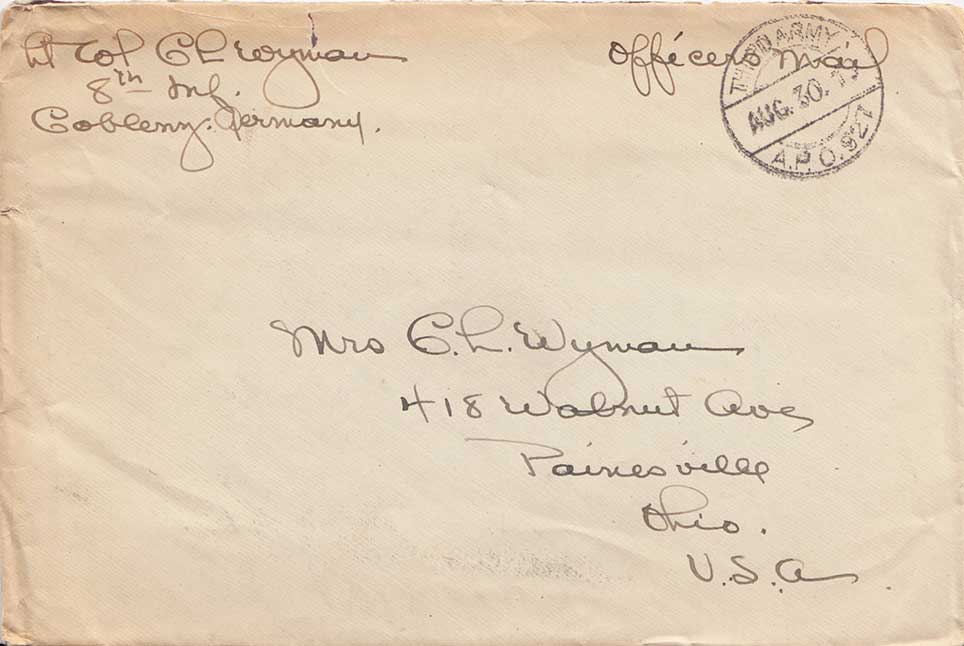 Lt Col C L Wyman
8th Inf.
Coblenz. Germany.
Officers Mail
THIRD ARMY
AUG. 30.
A.P.O. 927
Mrs C. L. Wyman
418 Walnut Ave
Painesville
Ohio.
U.S.A